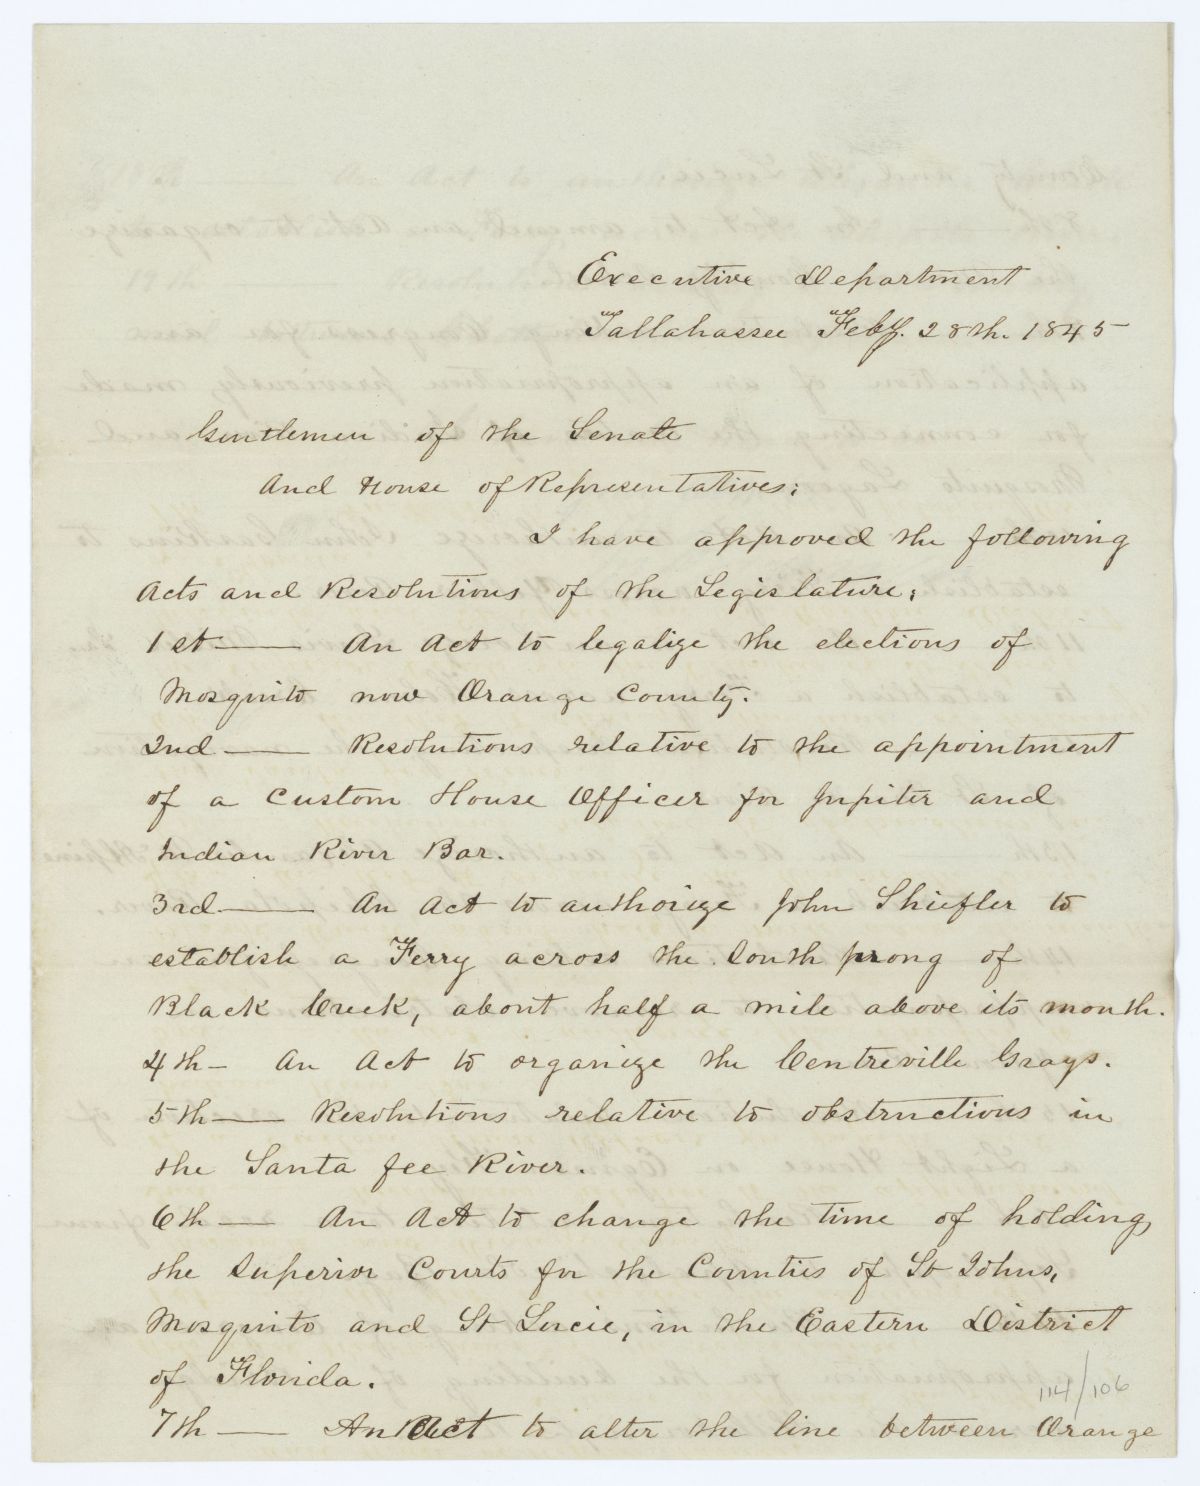 Executive Department
Tallahassee Feby. 28th. 1845
Gentlemen of the Senate
And House of Representatives;
I have approved the following
Acts and Resolutions of the Legislature;
1st —— An Act to legalize the elections of
Mosquito now Orange County.
2nd —— Resolutions relative to the appointment
of a Custom House Officer for Jupiter and
Indian River Bar.
3rd —— An Act to authorize John Shiefler to
establish a Ferry across the South prong of
Black Creek, about half a mile above its mouth.
4th — An Act to organize the Centreville Grays.
5th —— Resolutions relative to obstructions in
the Santa fee River.
6th —— An Act to change the time of holding
the Superior Courts for the Counties of St Johns,
Mosquito and St Lucie, in the Eastern District
of Florida.
114/106
7th —— An Act to alter the line between Orange